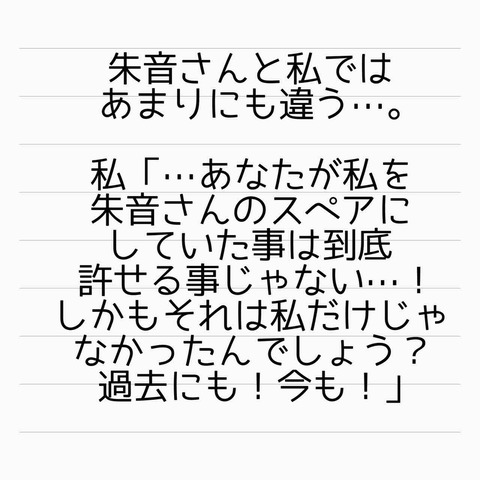 朱音さんと私では
あまりにも違う…。
私「…あなたが私を
朱音さんのスペアに
していた事は到底
許せる事じゃない…！
しかもそれは私だけじゃ
なかったんでしょう？
過去にも！今も！」